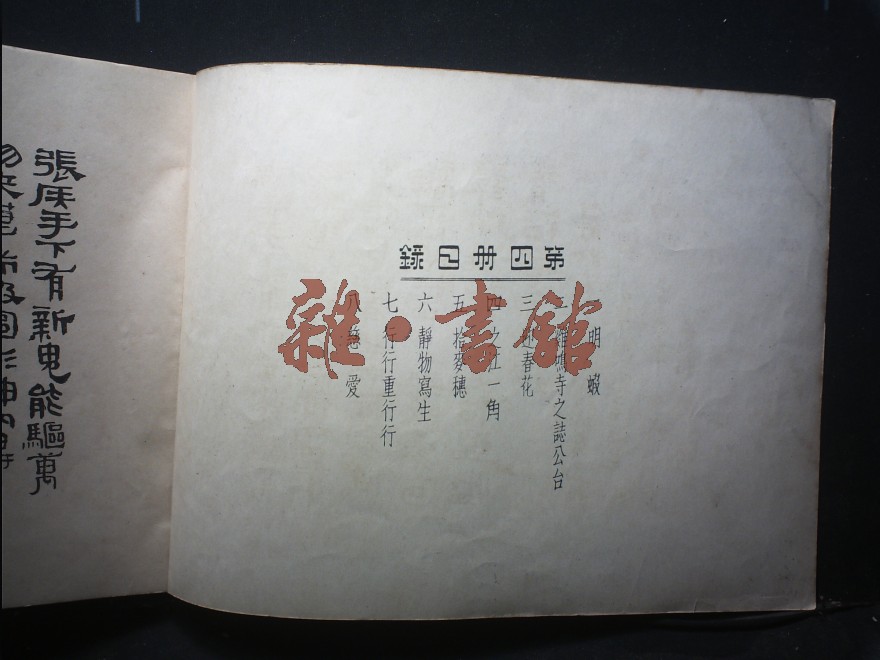 第四冊目錄
明蝦
二 雞鳴寺之誌公台
三 春花
四 之江一角
五 拾麥穗
六 靜物寫生
七 行行重行行
八 愛
張矦手下有新鬼能驅萬
雜·書館